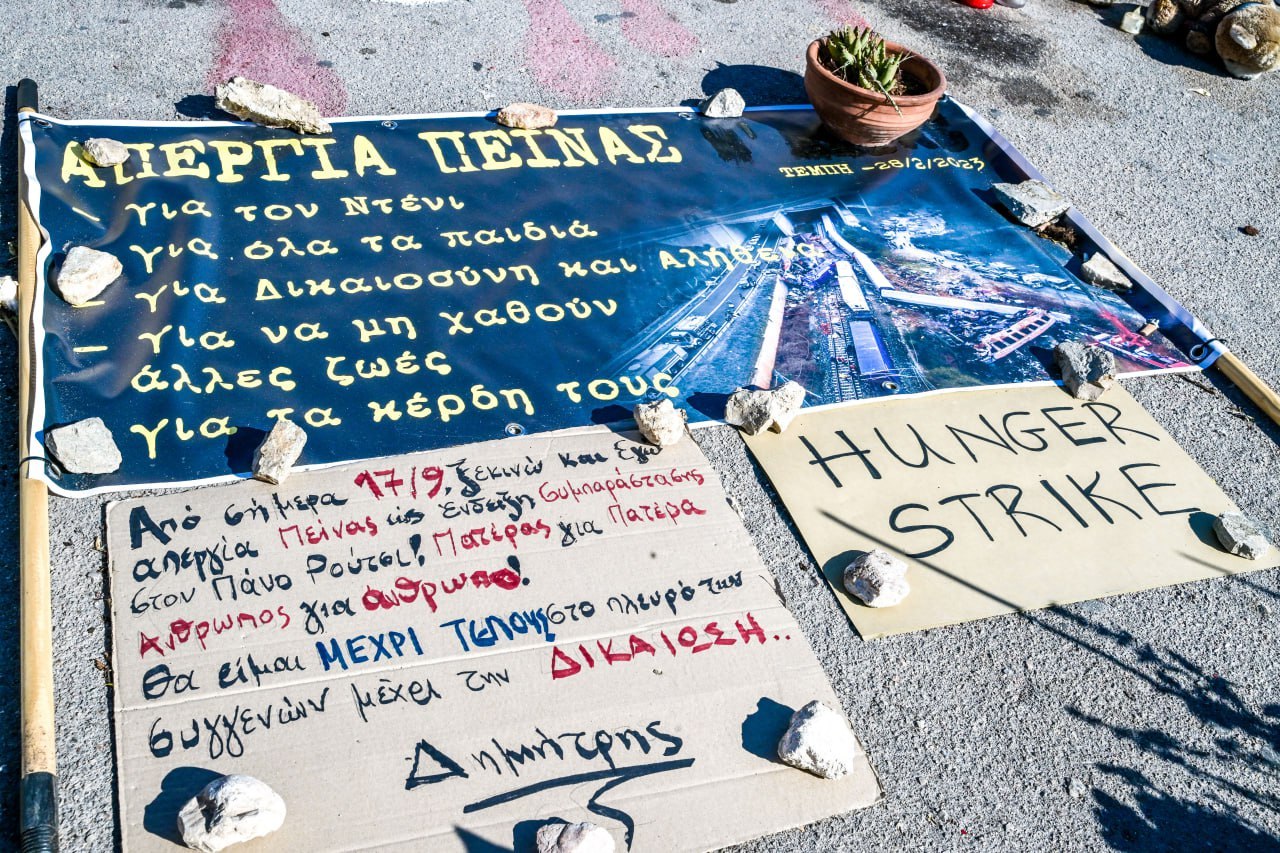 ΑΠΕΡΓΙΑ ΠΕΙΝΑΣ
ΤΕΜΠΗ -28/2/2023
- για τον Ντένι
- για όλα τα παιδιά
- για Δικαιοσύνη και Αλήθεια
- για να μη χαθούν
άλλες ζωές
για τα κέρδη τους
Από σήμερα 17/9, ξεκινώ και εγώ
απεργία Πείνας ως ένδειξη Συμπαράστασης
στον Πάνο Ρούτσι! Πατέρας για Πατέρα
Άνθρωπος για άνθρωπο!
Θα είμαι ΜΕΧΡΙ ΤΕΛΟΥΣ στο πλευρό των
συγγενών μέχρι την ΔΙΚΑΙΩΣΗ..
Δημήτρης
HUNGER
STRIKE